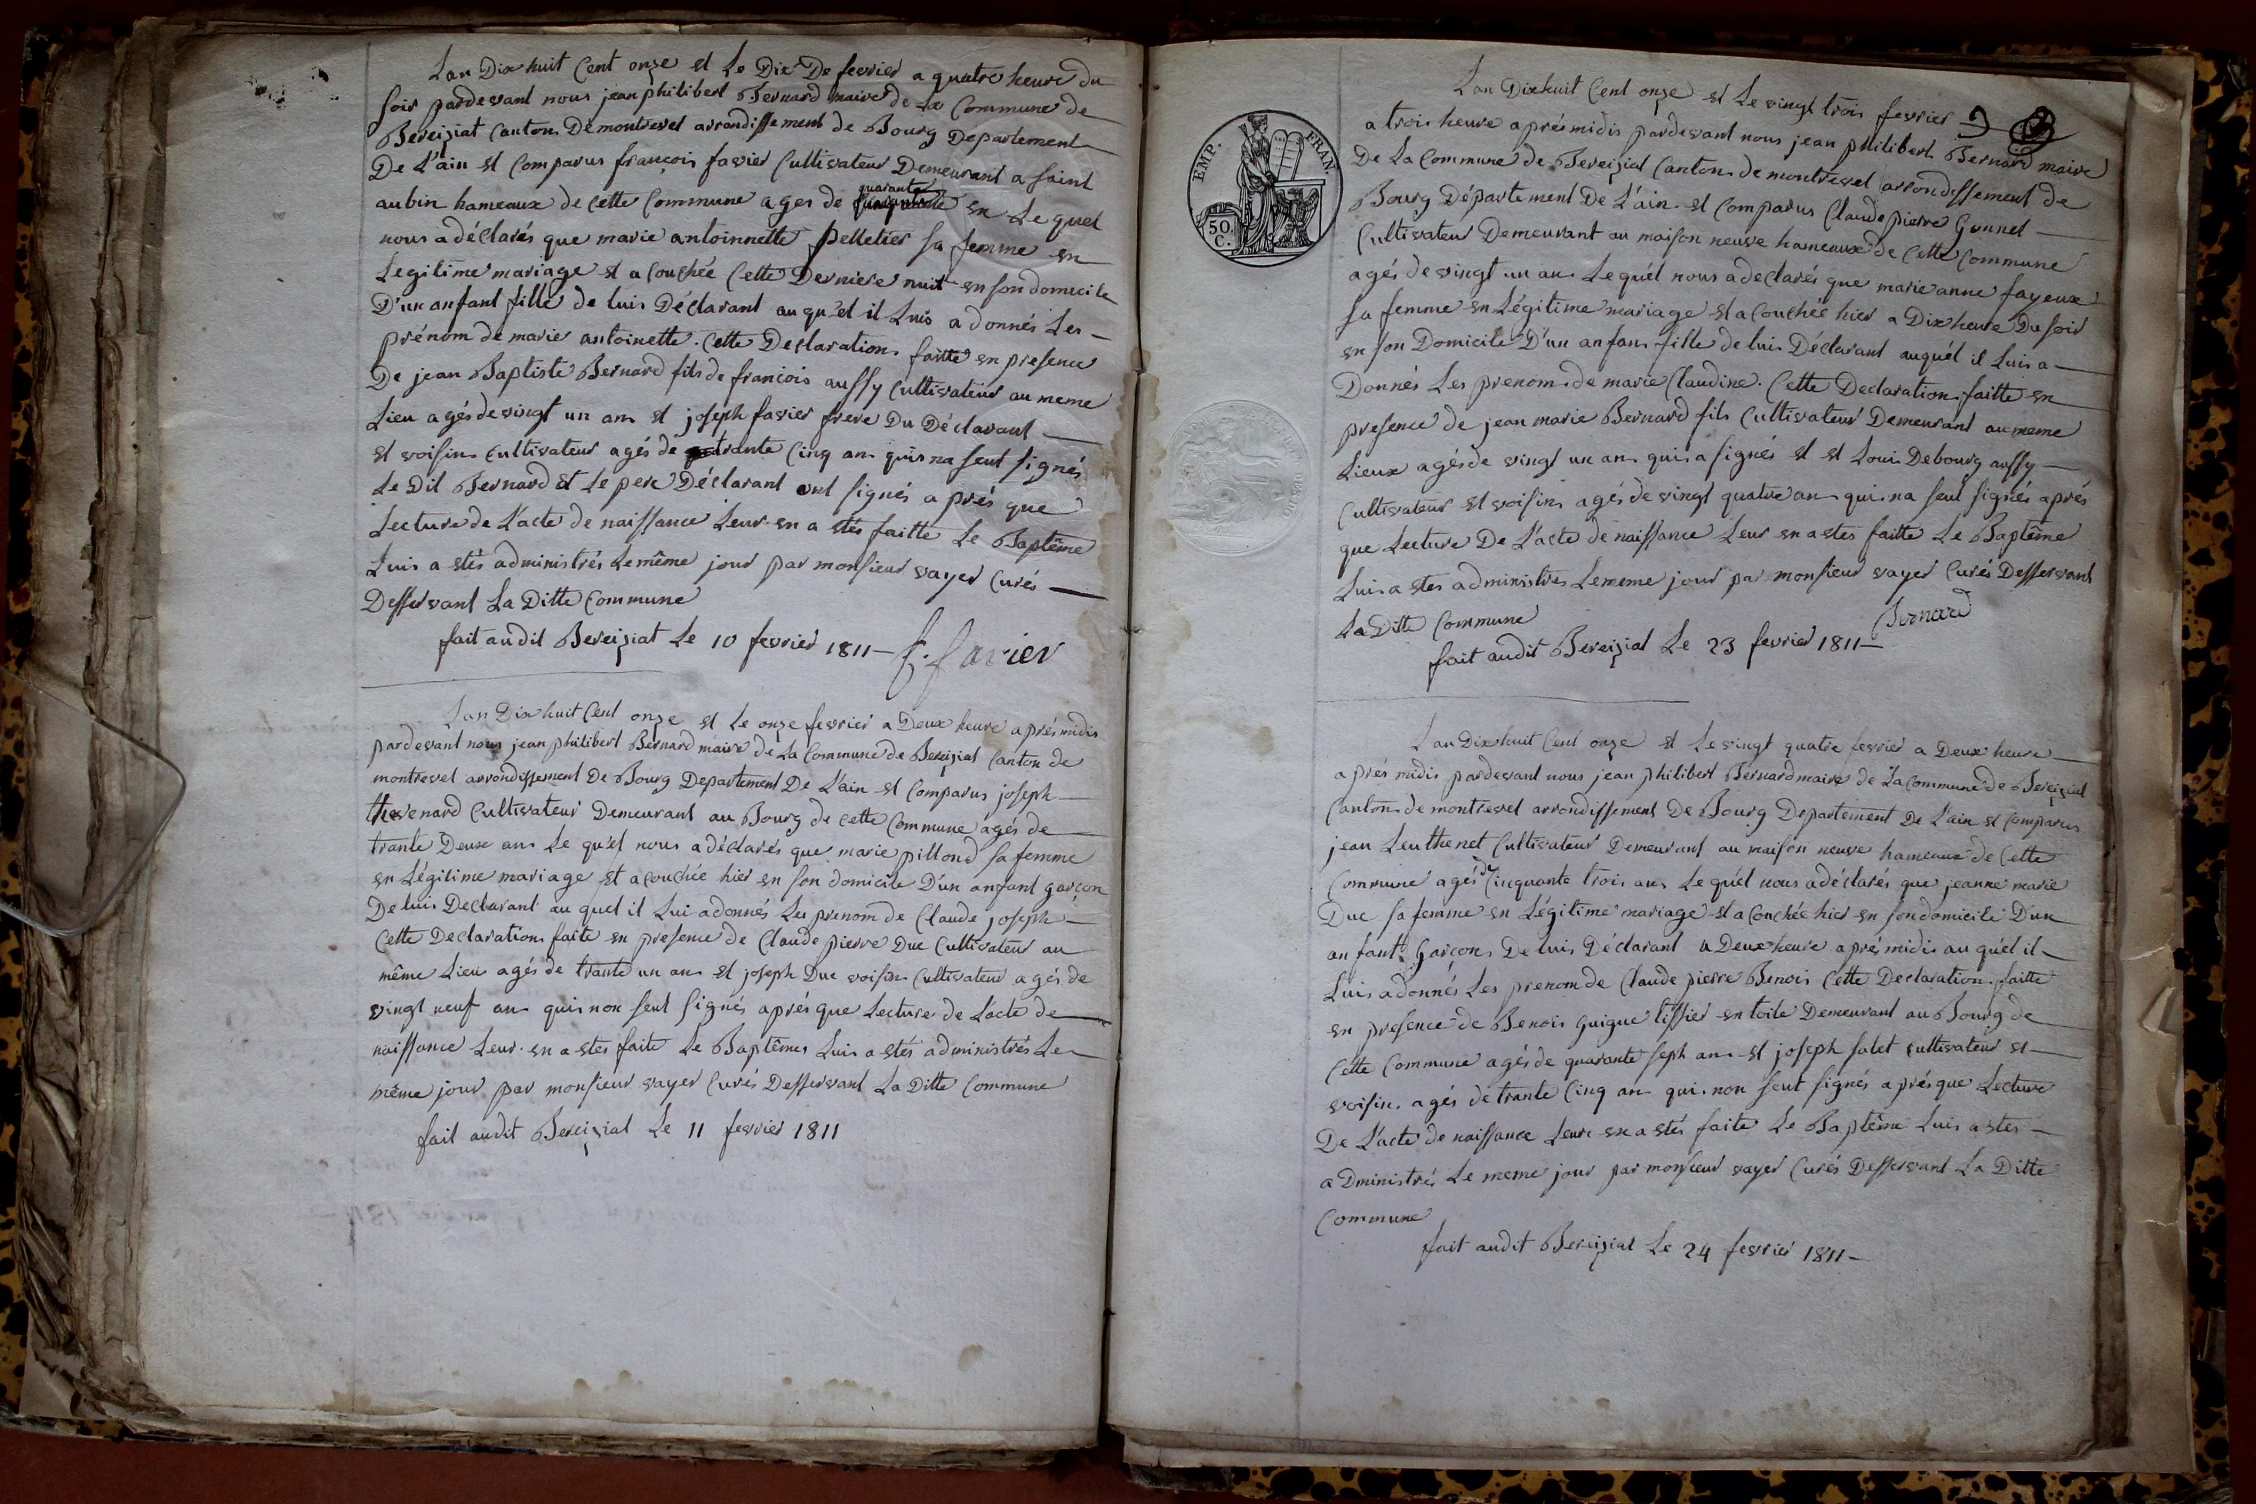 Lan Dix huit Cent onze et Le Dix De fevrier a quatre heure du
soir pardevant nous jean philibert Bernard maire de La Commune de
Bereiziat Canton De montrevel arrondissement de Bourg Departement
De L'ain et Comparus françois favier Cultivateur Demeurant a saint
aubin hameaux de Cette Commune ages de quarante an Le quel
nous a déclarés que marie antoinnette pelletier sa femme en
Legitime mariage et a Couchée Cette Derniere nuit en son domicile
D'un anfant fille de luis Déclarant auqu'el il Luis a donnés Les
prénom de marie antoinette. Cette Declaration faitte en presence
De jean Baptiste Bernard fils de francois aussy Cultivateur au meme
Lieu agés de vingt un ans et joseph favier frere Du Déclarant
et voisin Cultivateur agés de trante Cinq an quis na seut signés
Le Dit Bernard et Le pere Déclarant ont signés a prés que
Lecture de L'acte de naissance Leur en a étés faitte Le Baptême
Luis a étés administrés Le même jour par monsieur vayer Curés
Desservant La Ditte Commune
fait audit Bereiziat Le 10 fevrier 1811
f. favier
Lan Dix huit Cent onze et Le onze fevrier a Deux heure aprés midis
pardevant nous jean philibert Bernard maire de La Commune de Bereiziat Canton de
montrevel arrondissement De Bourg Departement De L'ain et Comparus joseph
thevenard Cultivateur Demeurant au Bourg de Cette Commune agés de
trante Deux ans Le qu'el nous a déclarés que marie pillond sa femme
en Légitime mariage et a Couchée hier en son domicile D'un anfant garçon
De luis Declarant au quel il Lui a donnés Les prenom de Claude joseph
Cette Declaration faite en presence de Claude pierre Duc Cultivateur au
même Lieu agés de trante un an et joseph Duc voisin Cultivateur agés de
vingt neuf an quis non seut signés aprés que Lecture de L'acte de
naissance Leur en a étes faite Le Baptêmes Luis a étés administrés Le
même jour par monsieur vayer Curés Desservant La Ditte Commune
fait audit Bereiziat Le 11 fevrier 1811
EMP. FRAN.
50 C.
Lan Dixhuit Cent onze et Le vingt trois fevrier
a trois heure aprés midis pardevant nous jean philibert Bernard maire
De La Commune de Bereiziat Canton de montrevel arrondissement de
Bourg Département De L'ain et Comparus Claude pierre Gonnet
Cultivateur Demeurant au maison neuve hameaux de Cette Commune
agés de vingt un an Le quél nous a declarés que marie anne fayeux
sa femme en Légitime mariage et a Couchée hier a Dix heure Du soir
en son Domicile D'un anfan fille de luis Déclarant auquél il Luis a
Donnés Les prenom de marie Claudine. Cette Declaration faitte en
presence de jean marie Bernard fils Cultivateur Demeurant au meme
Lieux agés de vingt un an qui a signés et et Louis Debourg aussy
Cultivateur et voisin agés de vingt quatre an qui na seut signés aprés
que Lecture De L'acte de naissance Leur en a étes faitte Le Baptême
Luis a étes administrés Le meme jour par monsieur vayer Curés Desservant
La Ditte Commune
Bernard
fait audit Bereiziat Le 23 fevrier 1811
Lan Dixhuit Cent onze et Le vingt quatre fevrier a Deux heure
a prés midis pardevant nous jean philibert Bernard maire de La Commune de Bereiziat
Canton de montrevel arrondissement De Bourg Departement De L'ain et Comparus
jean Leuthenet Cultivateur Demeurant au maison neuve hameaux de Cette
Commune agés de Cinquante trois ans Le quél nous a déclarés que jeanne marie
Duc sa femme en Légitime mariage et a Couchée hier en son domicile D'un
anfant Garçon De luis Déclarant a Deux heure aprés midis au quél il
Luis a donnés Les prenom de Claude pierre Benois Cette Declaration faitte
en presence de Benois guigue tissier en toile Demeurant au Bourg de
Cette Commune agés de quarante seph ans et joseph salet Cultivateur et
voisin agés de trante Cinq an qui non seut signés aprés que Lecture
De L'acte de naissance Leur en a étés faite Le Baptême Luis a étes
administrés Le meme jour par monsieur vayer Curés Desservant La Ditte
Commune
fait audit Bereiziat Le 24 fevrier 1811